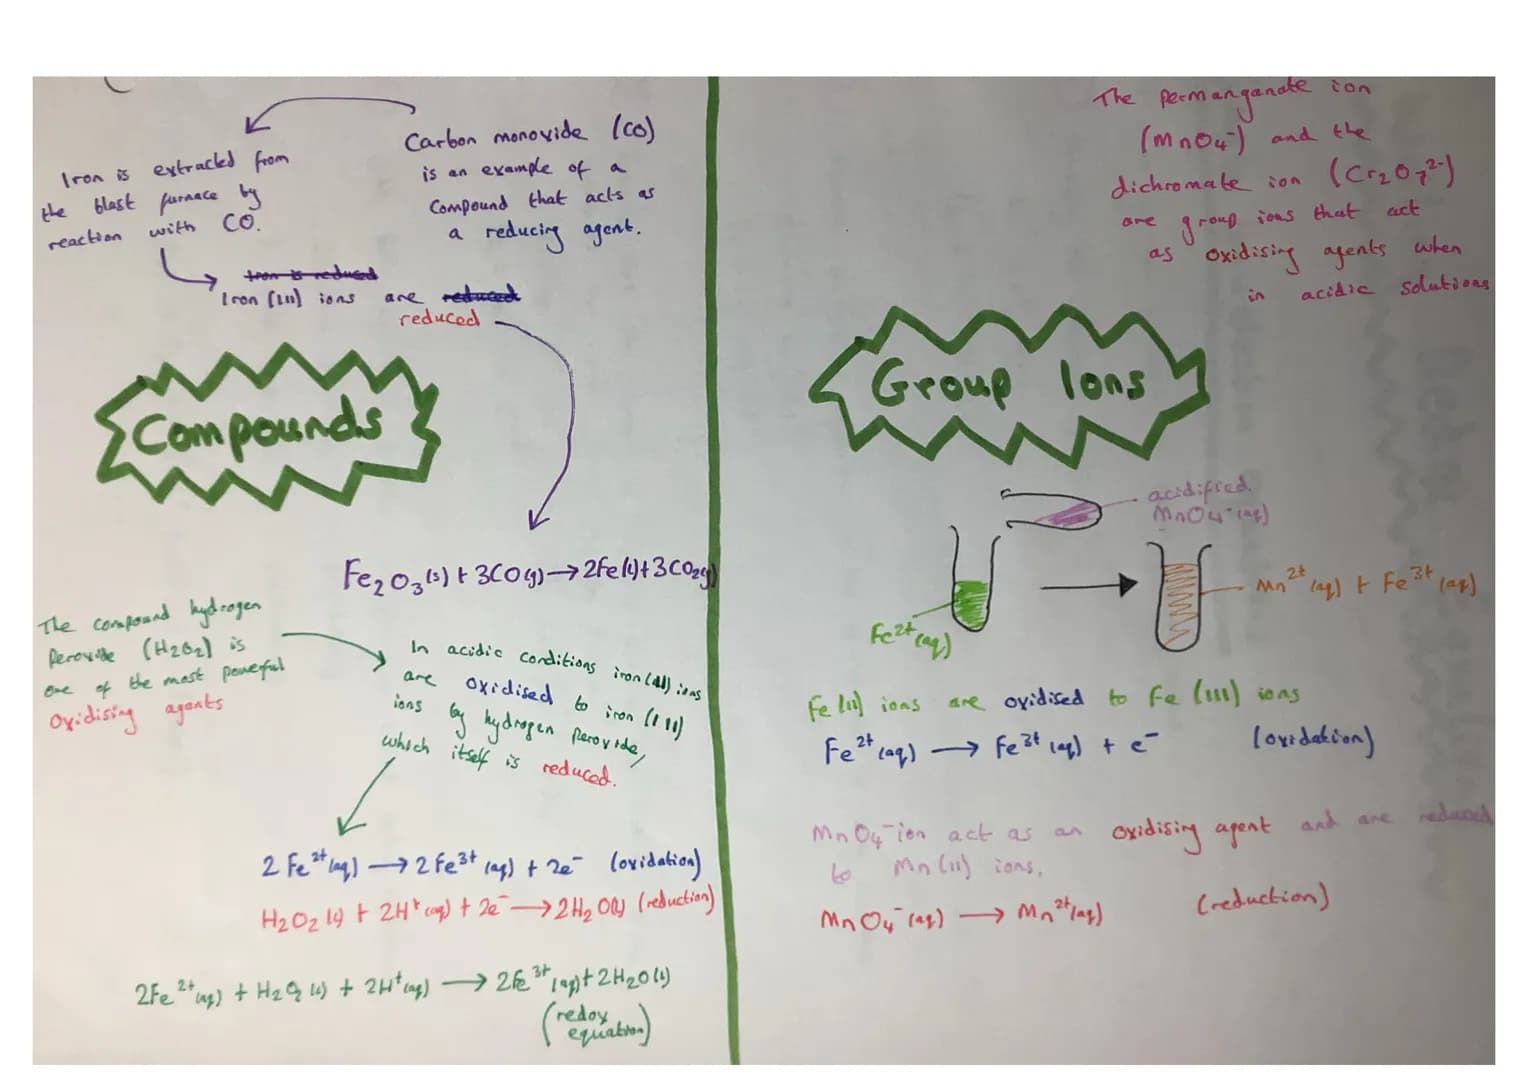 Carbon monoxide (CO)
is an example of a
compound that acts as
a reducing agent.
Iron is extracted from
the blast furnace by
reaction with CO.
Iron is reduced
Iron (III) ions are reduced
reduced
Compounds
Fe₂O₃(s) + 3CO(g) → 2Fe(l) + 3CO₂(g)
The compound hydrogen
Peroxide (H₂O₂) is
one of the most powerful
Oxidising agents
In acidic conditions iron (II) ions
are oxidised to iron (III)
ions by hydrogen peroxide,
which itself is reduced.
2 Fe²⁺(aq) → 2 Fe³⁺(aq) + 2e⁻ (oxidation)
H₂O₂(l) + 2H⁺(aq) + 2e⁻ → 2H₂O(l) (reduction)
2Fe²⁺(aq) + H₂O₂(l) + 2H⁺(aq) → 2Fe³⁺(aq) + 2H₂O(l)
(redox
equation)
The permanganate ion
(MnO₄⁻) and the
dichromate ion (Cr₂O₇²⁻)
are group ions that act
as oxidising agents when
in acidic solutions
Group Ions
acidified
MnO₄⁻(aq)
Fe²⁺(aq)
Mn²⁺(aq) + Fe³⁺(aq)
Fe (II) ions are oxidised to Fe (III) ions
Fe²⁺(aq) → Fe³⁺(aq) + e⁻ (oxidation)
MnO₄⁻ ion act as an oxidising agent and are reduced
to Mn (II) ions.
MnO₄⁻(aq) → Mn²⁺(aq) (reduction)